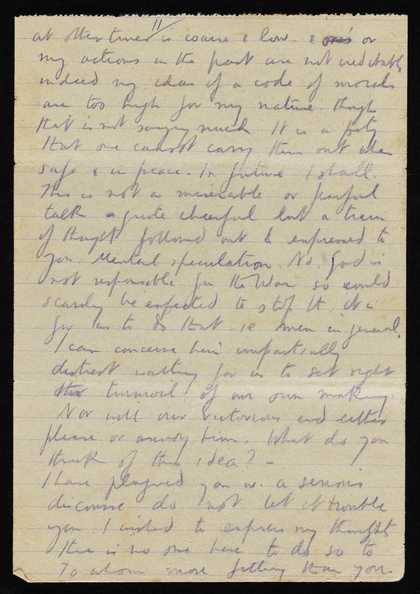 11
at other times is coarse & low. & or
my actions in the past are not creditable
indeed my ideas of a code of morals
are too high for my nature though
that is not saying much. It is a pity
that one cannot carry them out when
safe & in peace. In future I shall.
This is not a miserable or fearful
talk quite cheerful but a train
of thought followed out & expressed to
you. Mental speculation. No. God is
not responsible for the War so could
scarcely be expected to stop it. It is
for us to do that. ie men in general.
I can conceive him impartially
distrest waiting for us to set right
the turmoil of our own making.
Nor will our victorious end either
please or annoy him. What do you
think of this idea? -
I have plagued you w. a serious
discourse do not let it trouble
you I wished to express my thoughts
there is no one here to do so to
To whom more fitting than you.